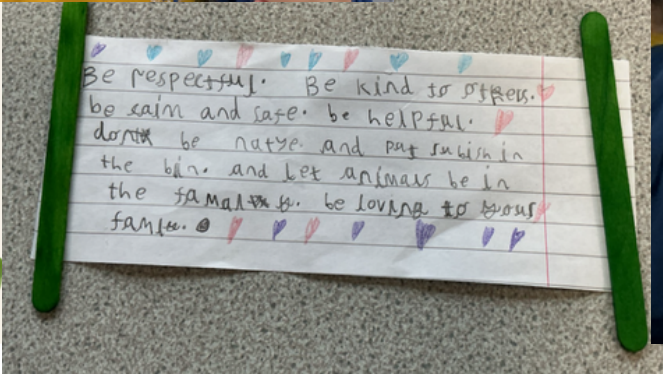 Be respectful. Be kind to others.
be calm and safe. be helpful.
dont be natye. and put rubish in
the bin. and let animals be in
the famal. be loving to your
famle.